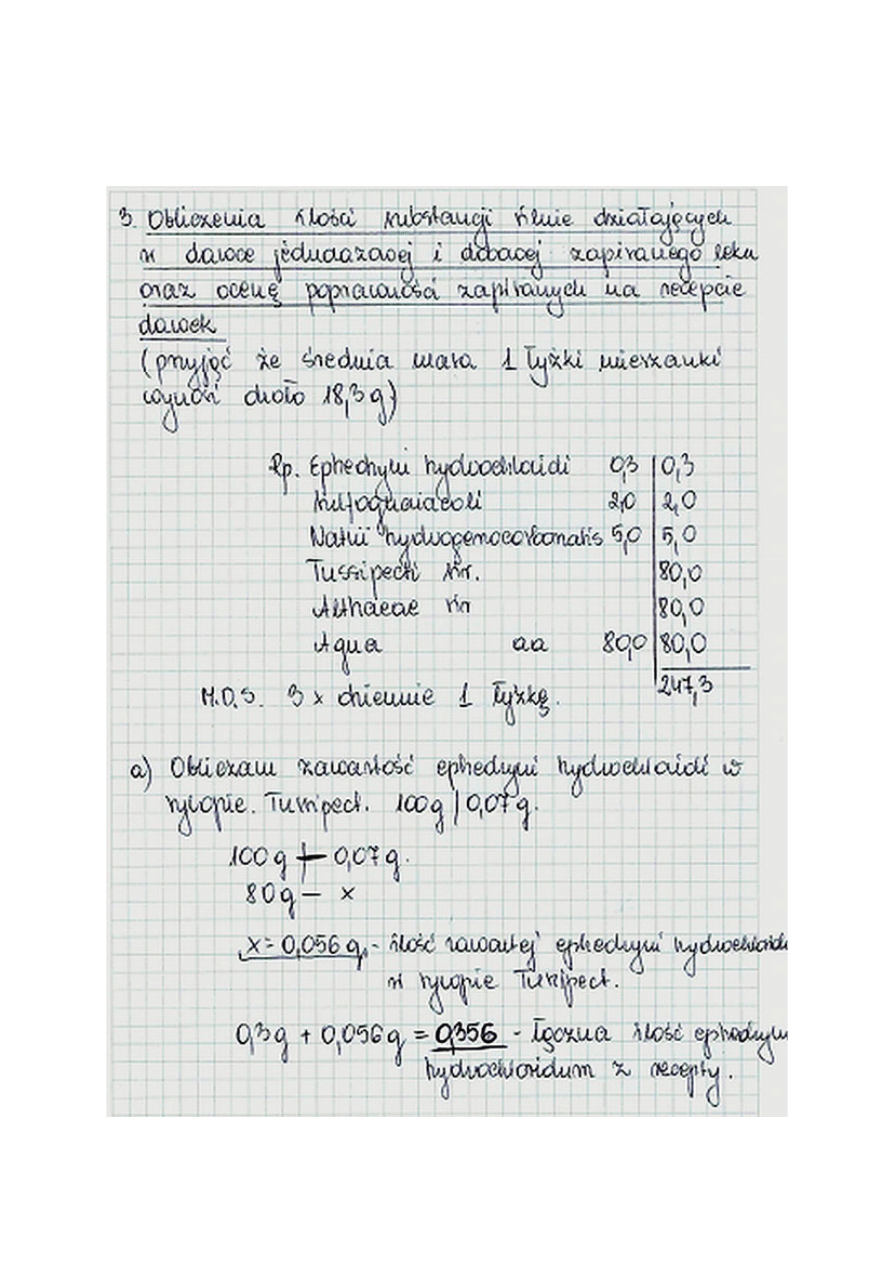 3. Obliczenia ilości substancji silnie działających
w dawce jednorazowej i dobowej zapisanego leku
oraz ocenę poprawności zapisanych na recepcie
dawek
(przyjąć że średnia masa 1 łyżki mieszanki
wynosi około 18,3 g)
Rp. Ephedryni hydrochloridi 0,3 | 0,3
Sulfoguaiacoli 2,0 | 2,0
Natrii hydrogenocarbonatis 5,0 | 5,0
Tussipecti sir. 80,0
Althaeae sir 80,0
Aqua aa 80,0 | 80,0
247,3
M.D.S. 3 x dziennie 1 łyżkę.
a) Obliczam zawartość ephedryni hydrochloridi w
syropie. Tussipect. 100g | 0,07g.
100g — 0,07g.
80g — x
x = 0,056 g. - ilość zawartej ephedryni hydrochloridi
w syropie Tussipect.
0,3g + 0,056g = 0,356 - łączna ilość ephedryni
hydrochloridum z recepty.